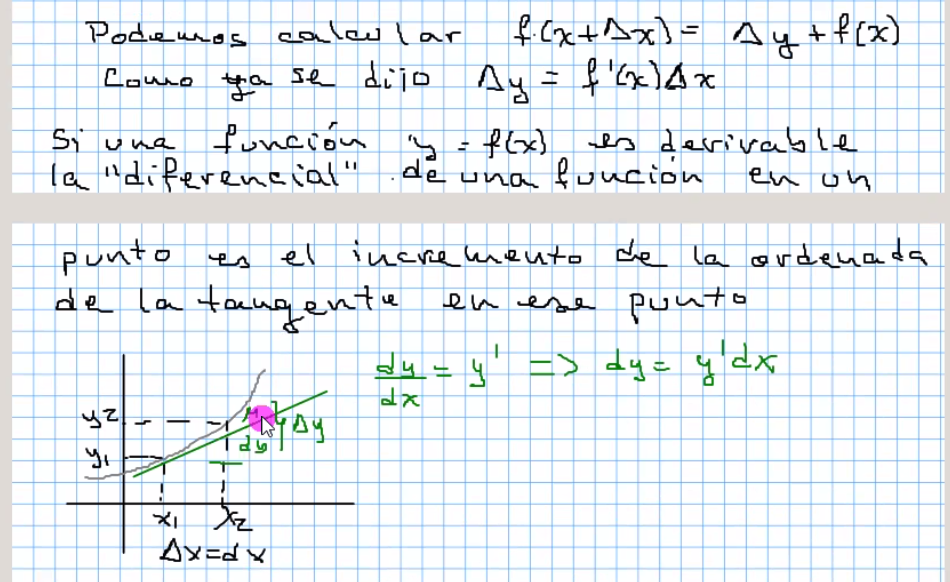 Podemos calcular f(x+Δx) = Δy + f(x)
Como ya se dijo Δy = f'(x)Δx
Si una función y = f(x) es derivable
la "diferencial" de una función en un
punto es el incremento de la ordenada
de la tangente en ese punto
dy/dx = y' => dy = y'dx
y2
Δy
dy
y1
x1 x2
Δx=dx